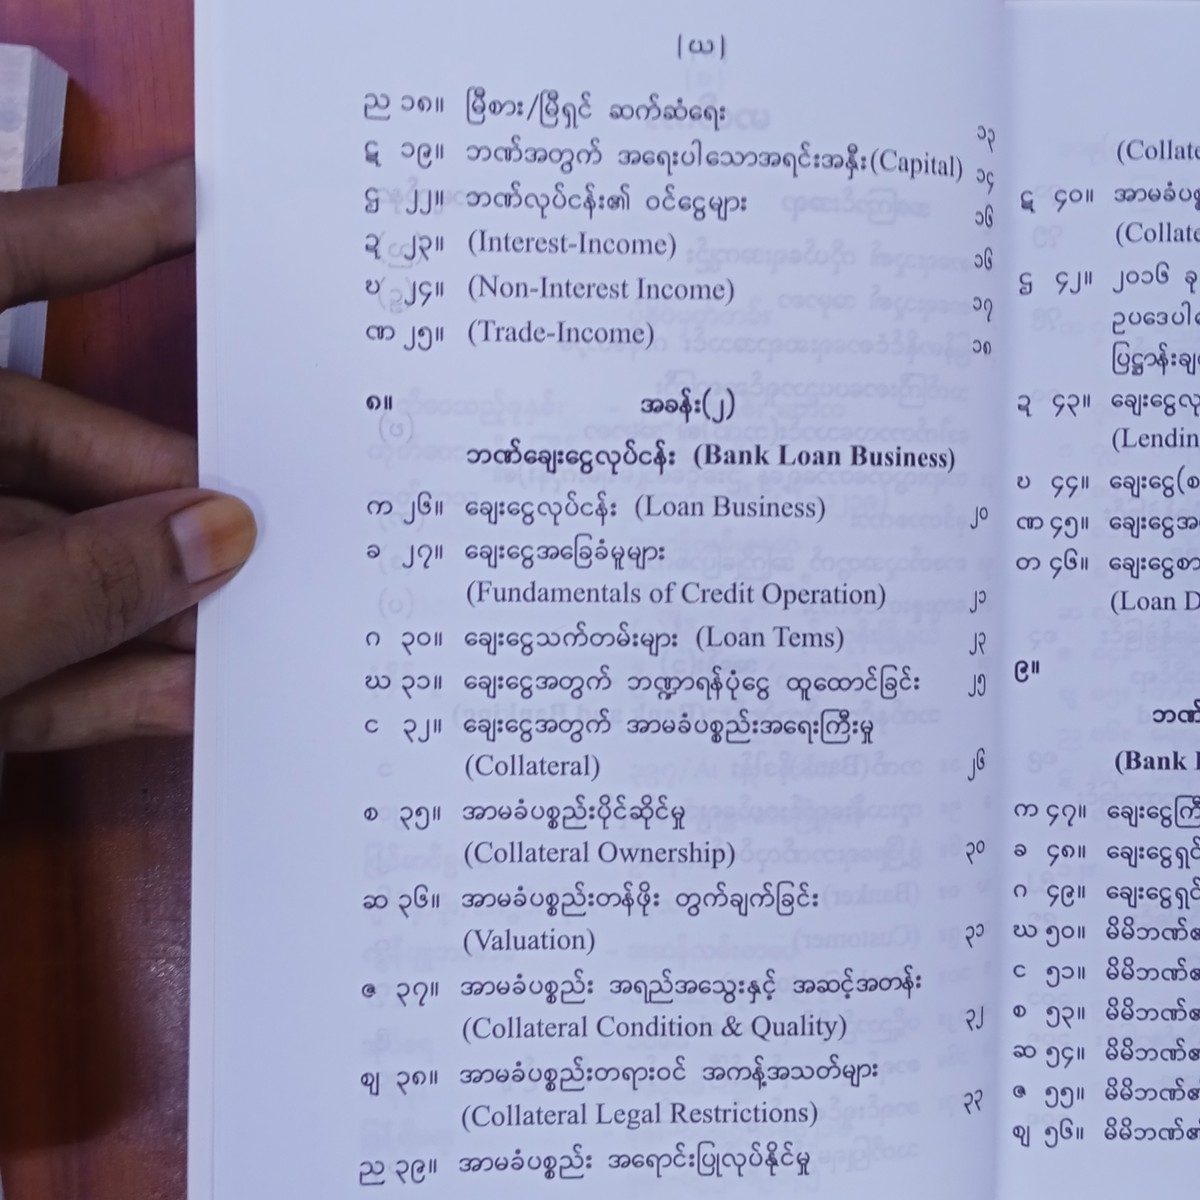 [ဃ]
ည ၁၈။ မြီစား/မြီရှင် ဆက်ဆံရေး ၁၃
ဋ ၁၉။ ဘဏ်အတွက် အရေးပါသောအရင်းအနှီး(Capital) ၁၄
ဌ ၂၂။ ဘဏ်လုပ်ငန်း၏ ဝင်ငွေများ ၁၆
ဍ ၂၃။ (Interest-Income) ၁၆
ဎ ၂၄။ (Non-Interest Income) ၁၇
ဏ ၂၅။ (Trade-Income) ၁၈
၈။ အခန်း(၂)
ဘဏ်ချေးငွေလုပ်ငန်း (Bank Loan Business)
က ၂၆။ ချေးငွေလုပ်ငန်း (Loan Business) ၂၀
ခ ၂၇။ ချေးငွေအခြေခံမူများ
(Fundamentals of Credit Operation) ၂၁
ဂ ၃၀။ ချေးငွေသက်တမ်းများ (Loan Tems) ၂၃
ဃ ၃၁။ ချေးငွေအတွက် ဘဏ္ဍာရန်ပုံငွေ ထူထောင်ခြင်း ၂၅
င ၃၂။ ချေးငွေအတွက် အာမခံပစ္စည်းအရေးကြီးမှု
(Collateral) ၂၆
စ ၃၅။ အာမခံပစ္စည်းပိုင်ဆိုင်မှု
(Collateral Ownership) ၃၀
ဆ ၃၆။ အာမခံပစ္စည်းတန်ဖိုး တွက်ချက်ခြင်း
(Valuation) ၃၁
ဇ ၃၇။ အာမခံပစ္စည်း အရည်အသွေးနှင့် အဆင့်အတန်း
(Collateral Condition & Quality) ၃၂
ဈ ၃၈။ အာမခံပစ္စည်းတရားဝင် အကန့်အသတ်များ
(Collateral Legal Restrictions) ၃၃
ည ၃၉။ အာမခံပစ္စည်း အရောင်းပြုလုပ်နိုင်မှု
(Collate
ဋ ၄၀။ အာမခံပစ္
(Collate
ဌ ၄၂။ ၂၀၁၆ ခု
ဥပဒေပါ
ပြဋ္ဌာန်းချ
ဍ ၄၃။ ချေးငွေလု
(Lendin
ဎ ၄၄။ ချေးငွေ(စ
ဏ ၄၅။ ချေးငွေအ
တ ၄၆။ ချေးငွေစာ
(Loan D
၉။
ဘဏ်
(Bank
က ၄၇။ ချေးငွေကြီ
ခ ၄၈။ ချေးငွေရှင်
ဂ ၄၉။ ချေးငွေရှင်
ဃ ၅၀။ မိမိဘဏ်၏
င ၅၁။ မိမိဘဏ်၏
စ ၅၃။ မိမိဘဏ်၏
ဆ ၅၄။ မိမိဘဏ်၏
ဇ ၅၅။ မိမိဘဏ်၏
ဈ ၅၆။ မိမိဘဏ်၏